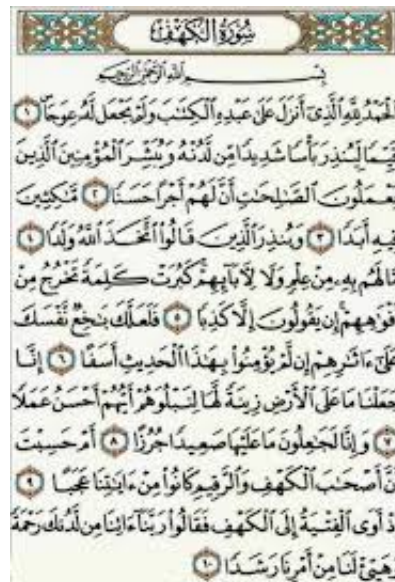 سُورَةُ الْكَهْفِ
بِسْمِ اللَّهِ الرَّحْمَٰنِ الرَّحِيمِ
ٱلْحَمْدُ لِلَّهِ ٱلَّذِىٓ أَنزَلَ عَلَىٰ عَبْدِهِ ٱلْكِتَٰبَ وَلَمْ يَجْعَل لَّهُۥ عِوَجَا ۜ ١
قَيِّمًا لِّيُنذِرَ بَأْسًا شَدِيدًا مِّن لَّدُنْهُ وَيُبَشِّرَ ٱلْمُؤْمِنِينَ ٱلَّذِينَ
يَعْمَلُونَ ٱلصَّٰلِحَٰتِ أَنَّ لَهُمْ أَجْرًا حَسَنًا ٢ مَّٰكِثِينَ
فِيهِ أَبَدًا ٣ وَيُنذِرَ ٱلَّذِينَ قَالُوا۟ ٱتَّخَذَ ٱللَّهُ وَلَدًا ٤
مَّا لَهُم بِهِۦ مِنْ عِلْمٍ وَلَا لِـَٔابَآئِهِمْ ۚ كَبُرَتْ كَلِمَةً تَخْرُجُ مِنْ
أَفْوَٰهِهِمْ ۚ إِن يَقُولُونَ إِلَّا كَذِبًا ٥ فَلَعَلَّكَ بَٰخِعٌ نَّفْسَكَ
عَلَىٰٓ ءَاثَٰرِهِمْ إِن لَّمْ يُؤْمِنُوا۟ بِهَٰذَا ٱلْحَدِيثِ أَسَفًا ٦ إِنَّا
جَعَلْنَا مَا عَلَى ٱلْأَرْضِ زِينَةً لَّهَا لِنَبْلُوَهُمْ أَيُّهُمْ أَحْسَنُ عَمَلًا
٧ وَإِنَّا لَجَٰعِلُونَ مَا عَلَيْهَا صَعِيدًا جُرُزًا ٨ أَمْ حَسِبْتَ
أَنَّ أَصْحَٰبَ ٱلْكَهْفِ وَٱلرَّقِيمِ كَانُوا۟ مِنْ ءَايَٰتِنَا عَجَبًا ٩
إِذْ أَوَى ٱلْفِتْيَةُ إِلَى ٱلْكَهْفِ فَقَالُوا۟ رَبَّنَآ ءَاتِنَا مِن لَّدُنكَ رَحْمَةً
وَهَيِّئْ لَنَا مِنْ أَمْرِنَا رَشَدًا ١٠